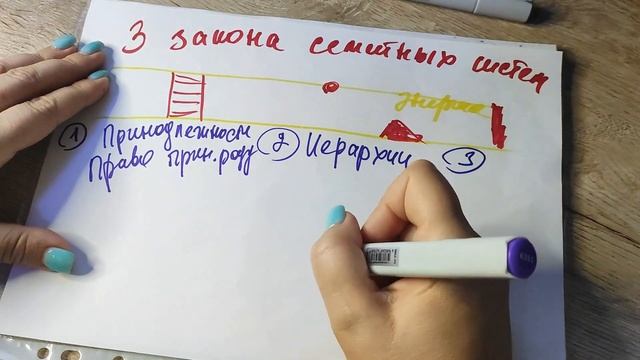 3 закона семейных систем
Энергия
① Принадлежности ② Иерархии ③
Право прин. роду